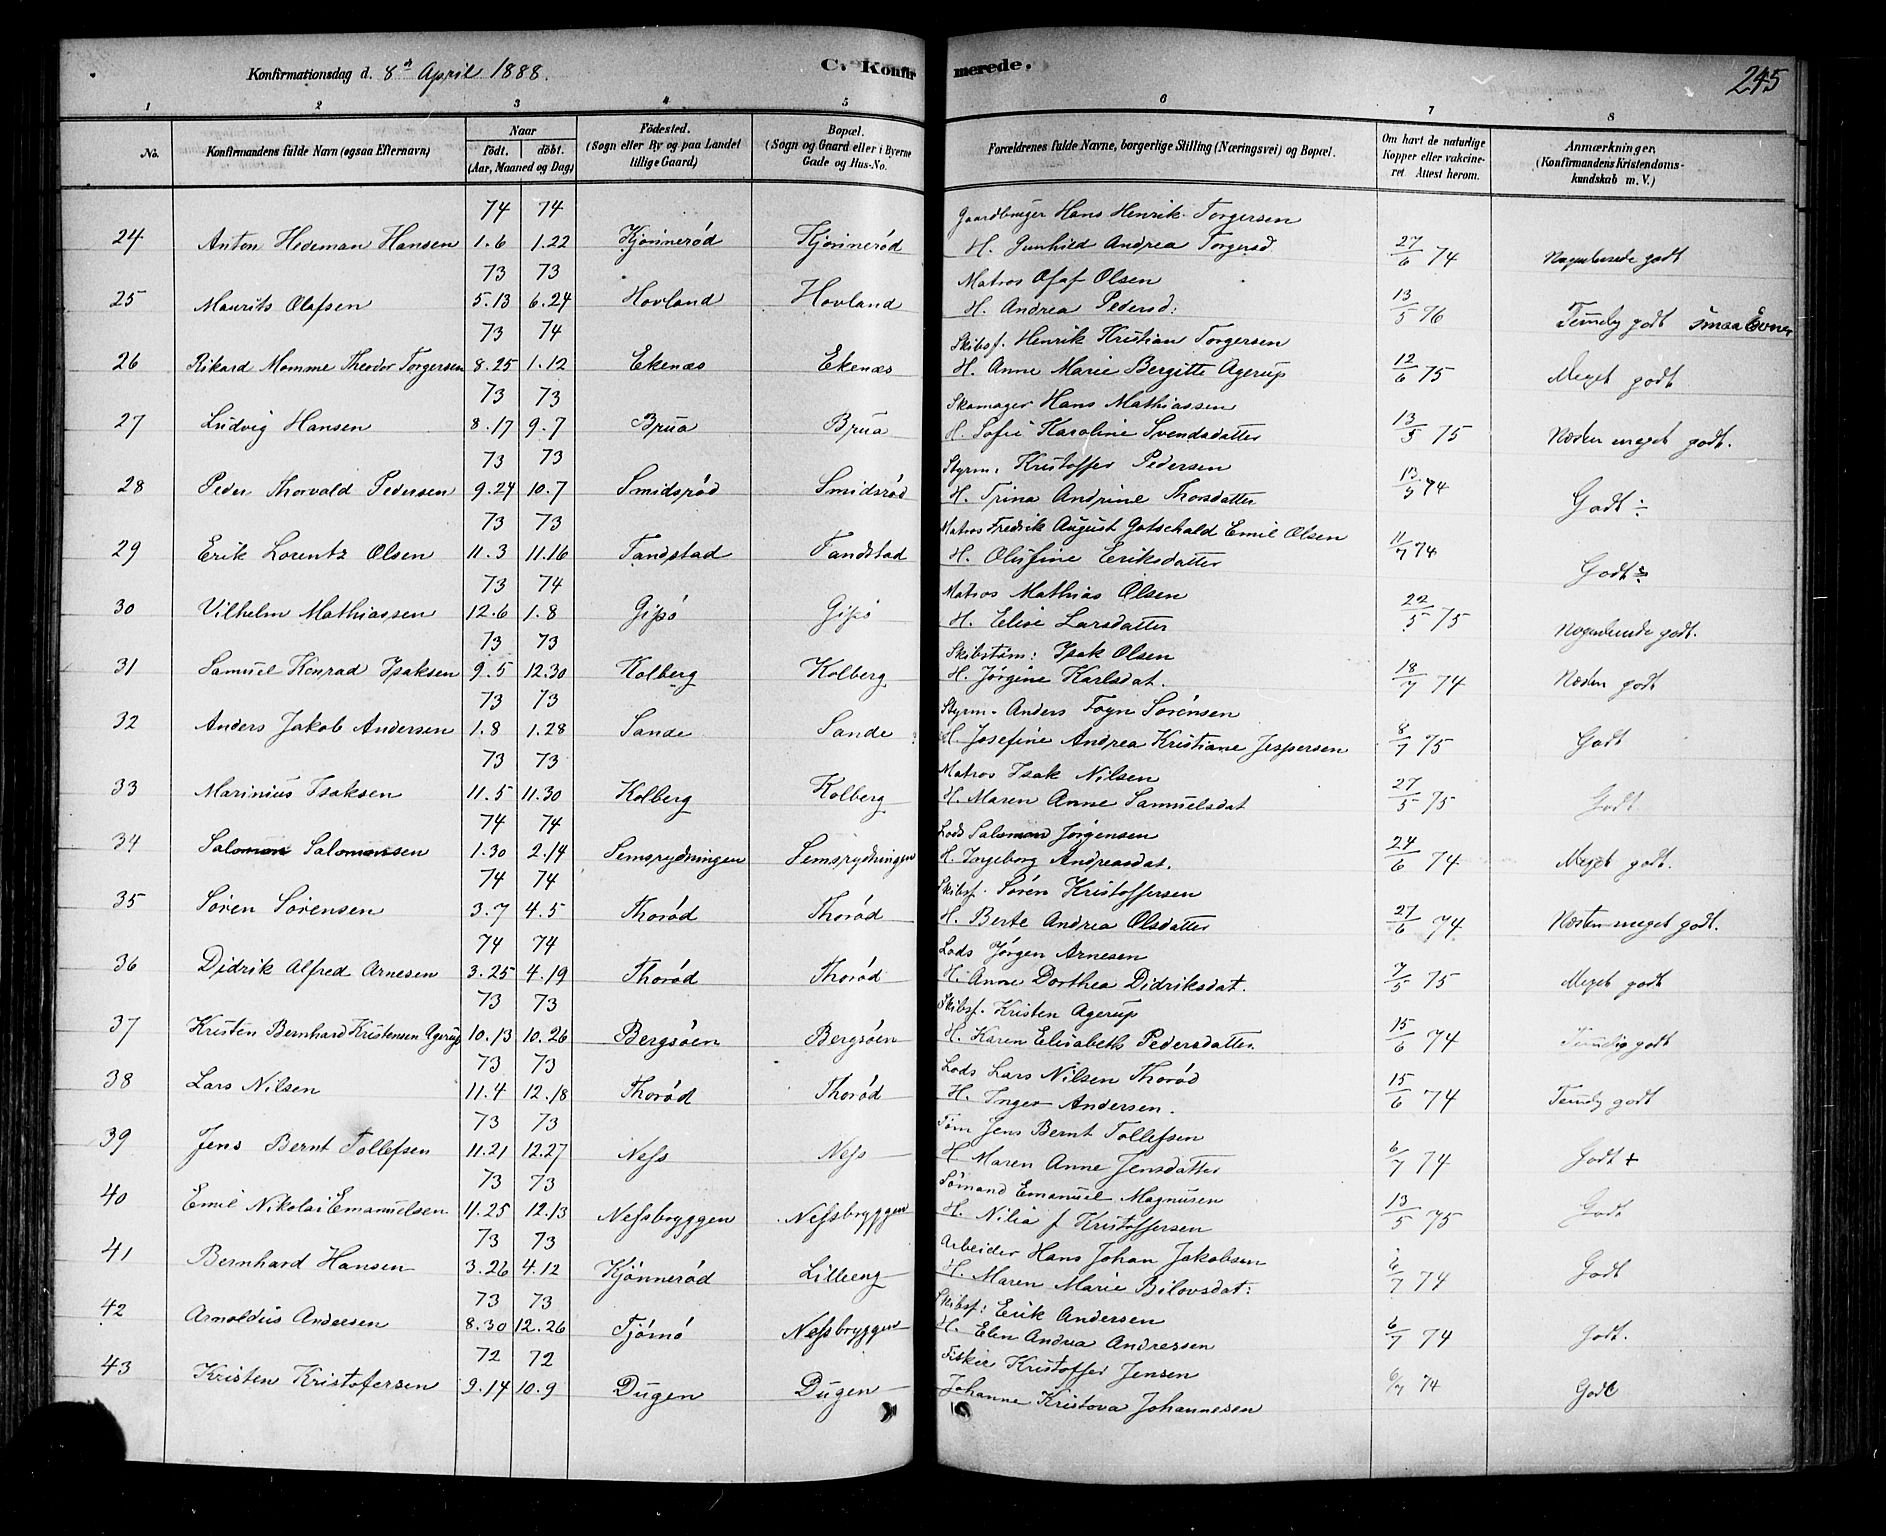 Konfirmationsdag d. 8de April 1888.
C. Konfirmerede.
245
1 2 3 4 5 6 7 8
No.
Konfirmandens fulde Navn (ogsaa Efternavn)
Naar
födt. döbt.
(Aar, Maaned og Dag)
Födested.
(Sogn eller By og paa Landet tillige Gaard)
Bopæl.
(Sogn og Gaard eller i Byerne Gade og Hus-No.
Forældrenes fulde Navne, borgerlige Stilling (Næringsvei) og Bopæl.
Om havt de naturlige Kopper eller vakcineret Attest herom.
Anmærkninger,
(Konfirmandens Kristendoms-kundskab m. V.)
74 74 Gaardbruger Hans Henrik Torgersen
24 Anton Hedeman Hansen 1.6 1.22 Kjönnerød Kjönnerød H. Gunhild Andrea Torgersd 27/6 74 Nogenlunde godt
73 73 Matros Olaf Olsen
25 Maurits Olafsen 5.13 6.24 Hovland Hovland H. Andrea Pedersd: 13/5 76 Temlig godt smaa Evner
73 74 Skibsf. Henrik Kristian Torgersen
26 Rikard Momme Theodor Torgersen 8.25 1.12 Ekenæs Ekenæs H. Anne Marie Bergitte Agerup 12/6 75 Meget godt
73 73 Skomager Hans Mathiassen
27 Ludvig Hansen 8.17 9.7 Brua Brua H. Sofie Karoline Svendsdatter 13/5 75 Næsten meget godt.
73 73 Styrm: Kristoffer Pedersen
28 Peder Thorvald Pedersen 9.24 10.7 Smidsrød Smidsrød H. Trina Andrine Thorsdatter 74 Godt ÷
73 73 Matros Fredrik August Gotschald Emil Olsen
29 Erik Lorentz Olsen 11.3 11.16 Tandstad Tandstad H. Olufine Eriksdatter 11/7 74 Godt
73 74 Matros Mathias Olsen
30 Vilhelm Mathiassen 12.6 1.8 Gipø Gipø H. Elise Larsdatter 22/5 75 Nogenlunde godt.
73 73 Skibstöm: Isak Olsen
31 Samuel Konrad Isaksen 9.5 12.30 Kolberg Kolberg H. Jørgine Karlsdat. 18/7 74 Næsten godt
73 73 Styrm. Anders Foyn Sørensen
32 Anders Jakob Andersen 1.8 1.28 Sande Sande H. Josefine Andrea Kristiane Jespersen 8/7 75 Godt
73 73 Matros Isak Nilsen
33 Marinius Isaksen 11.5 11.30 Kolberg Kolberg H. Maren Anne Samuelsdat 27/5 75 Godt
74 74 Lods Salomon Jørgensen
34 Salomon Salomonsen 1.30 2.14 Semsrydningen Semsrydningen H. Ingeborg Andreasdat. 24/6 74 Meget godt.
74 74 Skibsf. Søren Kristoffersen
35 Søren Sørensen 3.7 4.5 Thorød Thorød H. Berte Andrea Olsdatter 27/6 74 Næsten meget godt.
74 74 Lods Jørgen Arnesen
36 Didrik Alfred Arnesen 3.25 4.19 Thorød Thorød H. Anne Dorthea Didriksdat. 7/5 75 Meget godt
73 73 Skibsf. Kristen Agerup
37 Kristen Bernhard Kristensen Agerup 10.13 10.26 Bergsöen Bergsöen H. Karen Elisabeth Pedersdatter 15/6 74 Temlig godt
73 73 Lods Lars Nilsen Thorød
38 Lars Nilsen 11.4 12.18 Thorød Thorød H. Inger Andersen. 15/6 74 Temlig godt
73 73 Töm Jens Bernt Tollefsen
39 Jens Bernt Tollefsen 11.21 12.27 Ness Ness H Maren Anne Jensdatter 6/7 74 Godt +
73 73 Sömand Emanuel Magnusen
40 Emil Nikolai Emanuelsen 11.25 12.13 Nessbryggen Nessbryggen H. Nilia f Kristoffersen 13/5 75 Godt
73 73 Arbeider Hans Johan Jakobsen
41 Bernhard Hansen 3.26 4.12 Kjönnerød Lilleeng H. Maren Marie Bilovsdat: 6/7 74 Godt
73 73 Skibsf: Erik Andersen
42 Arnoldus Andersen 8.30 12.26 Tjömö Nessbryggen H. Elen Andrea Andressen 6/7 74 Godt.
72 72 Fisker Kristoffer Jensen
43 Kristen Kristofersen 9.14 10.9 Dugen Dugen Johanne Kristova Johannesen 6/7 74 Godt